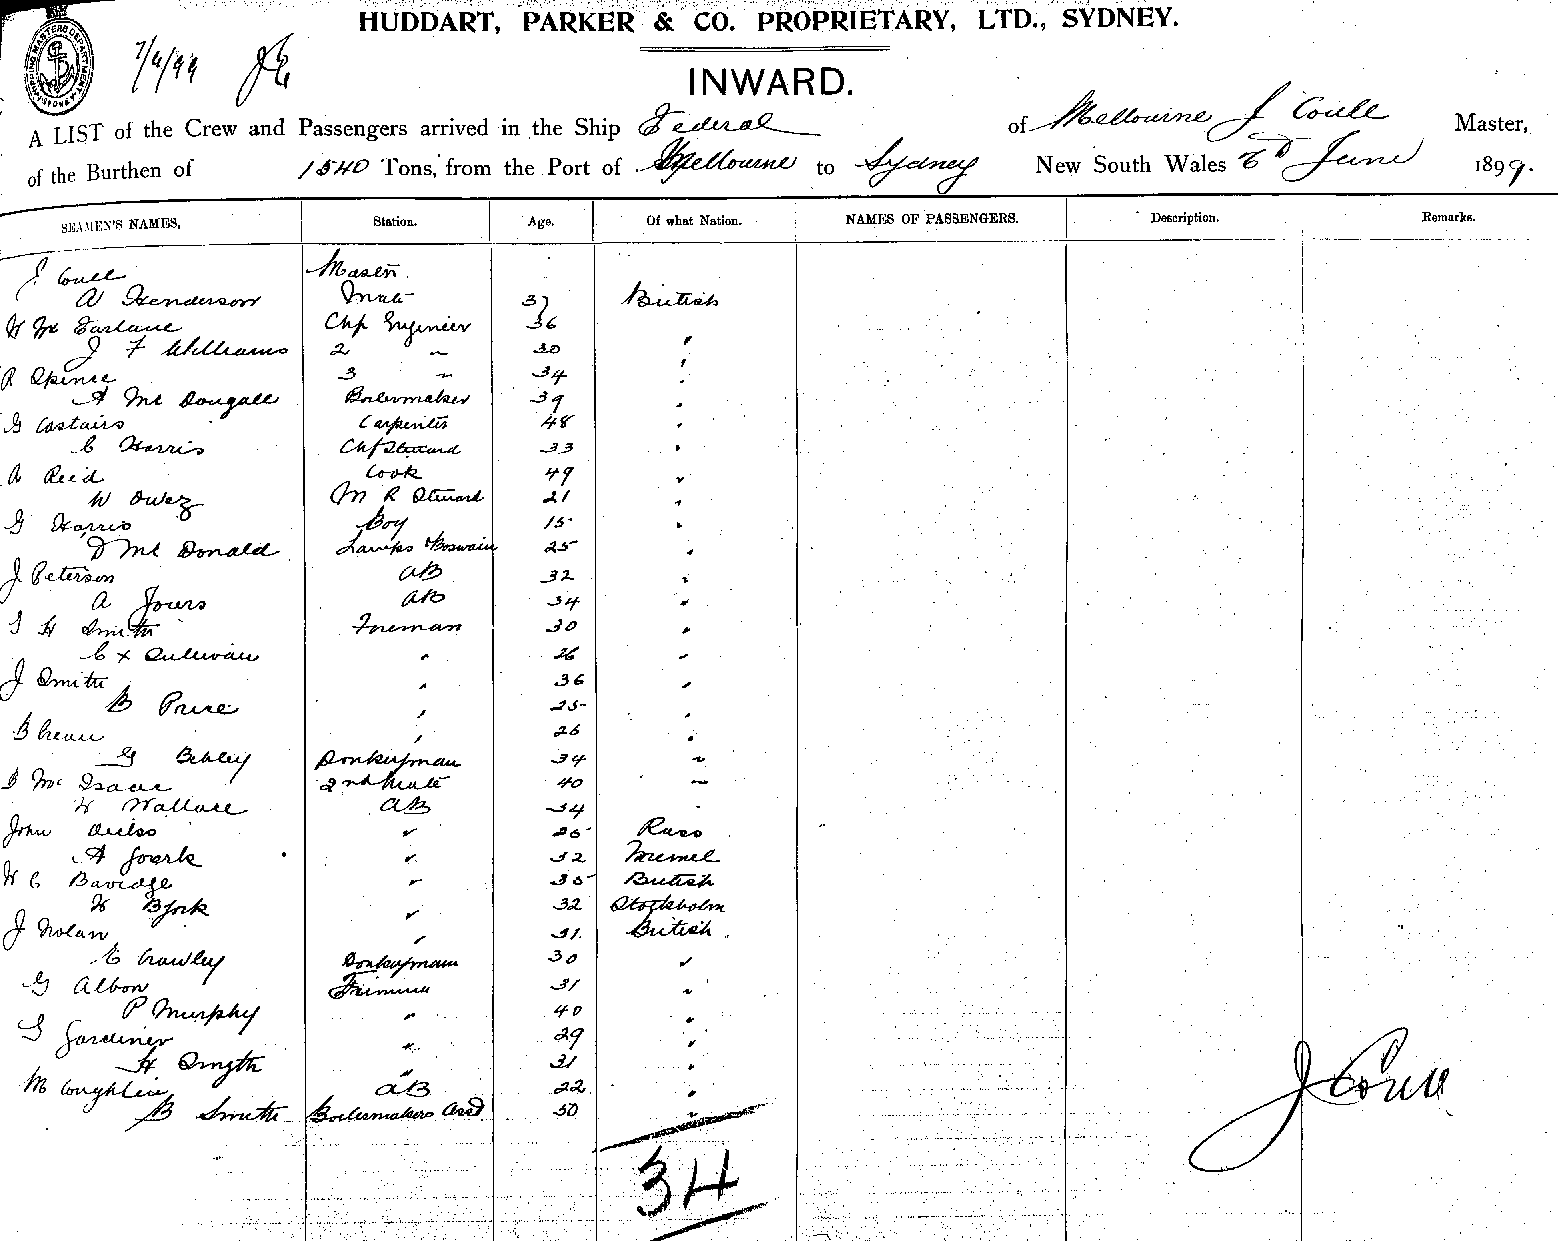 HUDDART, PARKER & CO. PROPRIETARY, LTD., SYDNEY.
7/6/99
INWARD.
A LIST of the Crew and Passengers arrived in the Ship Federal of Melbourne J Coull Master,
of the Burthen of 1540 Tons, from the Port of Melbourne to Sydney New South Wales 6th June 1899.
SEAMEN'S NAMES, Station. Age. Of what Nation. NAMES OF PASSENGERS. Description. Remarks.
J Coull Master
A Henderson Mate 37 British
H Mc Farlane Chf Engineer 36
J F Williams 2 " 30 "
R Spence 3 " 34 "
A Mc Dougall Boilermaker 39 "
G Castairs Carpenter 48 "
C Harris Chf Steward 33 "
A Reid Cook 49 "
W M R Steward 21 "
G Harris Boy 15 "
D Mc Donald Lamps & Boswain 25 "
J Peterson AB 32 "
A AB 34 "
T H Smith Fireman 30 "
C Sullivan " 26 "
J Smith " 36 "
B Price " 25 "
B " 26 "
G Donkeyman 34 "
D Mc Isaac 2nd Mate 40 "
W Wallace AB 34 "
John " 26 Russ
A " 32 Memel
W C Bavidge " 35 British
H Bjork " 32 Stockholm
J Nolan " 31 British
C Crowley Donkeyman 30 "
G Albon Fireman 31 "
P Murphy " 40 "
T Gardiner " 29 "
H Smyth " 31 "
M Coughlin AB 22 "
B Smith Boilermakers Asst 50 "
34
J Coull